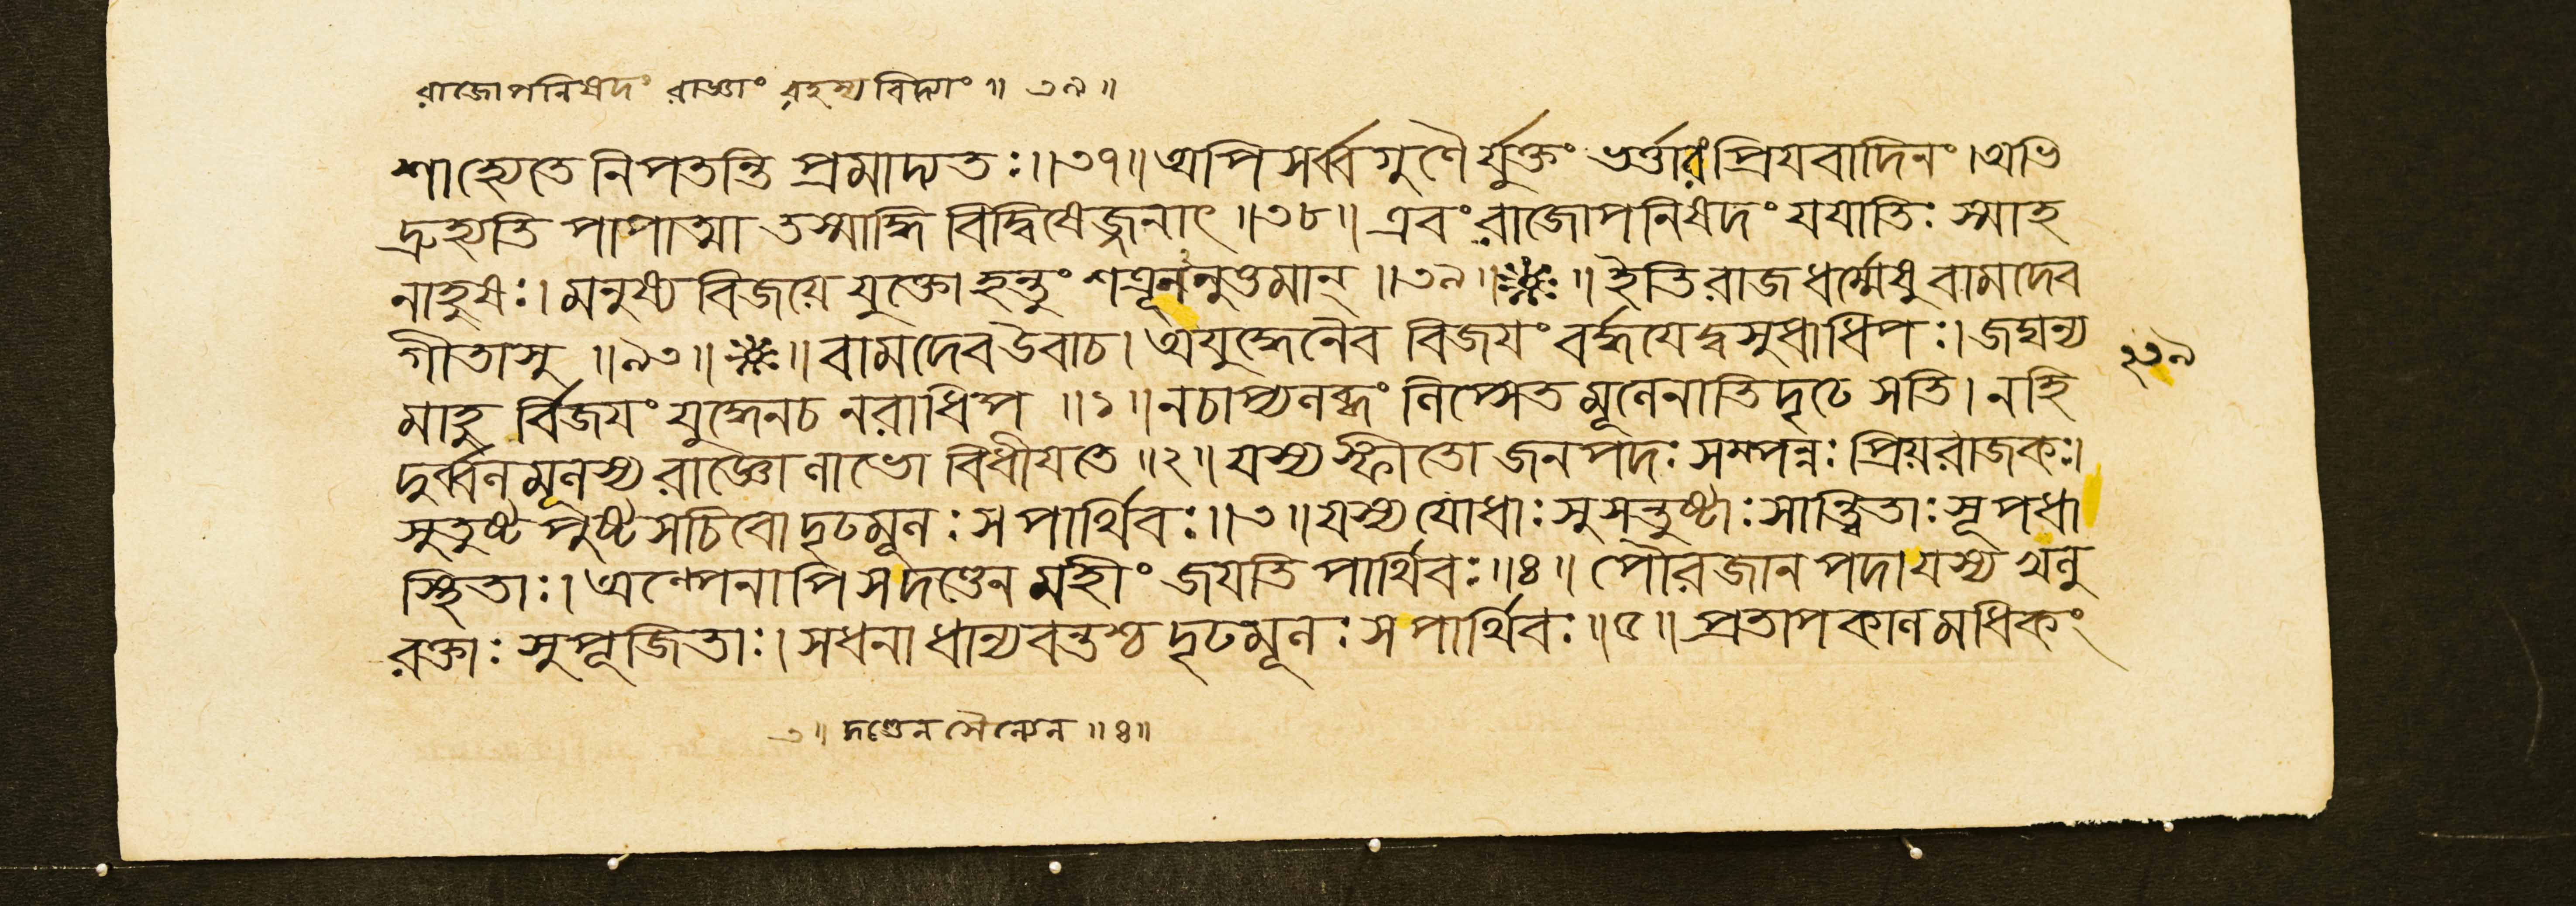 রাজোপনিষদং রাজ্ঞাং রহস্যবিদ্যাং ॥ ৩৯ ॥
শাহ্যেতে নিপতন্তি প্রমাদ্যতঃ ॥ ৩৭ ॥ অপি সর্ব্বগুণৈর্যুক্তং ভর্ত্তারং প্রিযবাদিনং । অভি
দ্রুহ্যতি পাপাত্মা তস্মাদ্ধি বিদ্বিষেজ্জনাৎ ॥ ৩৮ ॥ এবং রাজোপনিষদং যযাতিঃ স্মাহ
নাহুষঃ । মনুষ্য বিজয়ে যুক্তো হন্তুং শত্রূননুত্তমান্ ॥ ৩৯ ॥ ॥ ইতি রাজধর্ম্মেষু বামদেব
গীতাসু ॥ ৯৩ ॥ ॥ বামদেব উবাচ । অযুদ্ধেনৈব বিজযং বর্দ্ধযেদ্বসুধাধিপঃ । জঘন্য
মাহু র্বিজযং যুদ্ধেনচ নরাধিপ ॥ ১ ॥ নচাপ্যলব্ধং লিপ্সেত মূলেনাতিদৃঢে সতি । নহি
দুর্ব্বলমূলস্য রাজ্ঞো লাভো বিধীযতে ॥ ২ ॥ যস্য স্ফীতো জনপদঃ সম্পন্নঃ প্রিয়রাজকঃ ।
সুতুষ্টপুষ্টসচিবো দৃঢমূলঃ স পার্থিবঃ ॥ ৩ ॥ যস্য যোধাঃ সুসন্তুষ্টাঃ সান্ত্বিতাঃ সূপধা
স্থিতাঃ । অল্পেনাপি স দণ্ডেন মহীং জযতি পার্থিবঃ ॥ ৪ ॥ পৌরজানপদা যস্য অনু
রক্তাঃ সুপূজিতাঃ । সধনা ধান্যবন্তশ্চ দৃঢমূলঃ স পার্থিবঃ ॥ ৫ ॥ প্রতাপকালমধিকং
২৩৯
৩ ॥ দণ্ডেন সৈন্যেন ॥ ৪ ॥